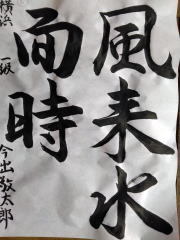 風来水
面時
横浜 一級 今出敬太郎